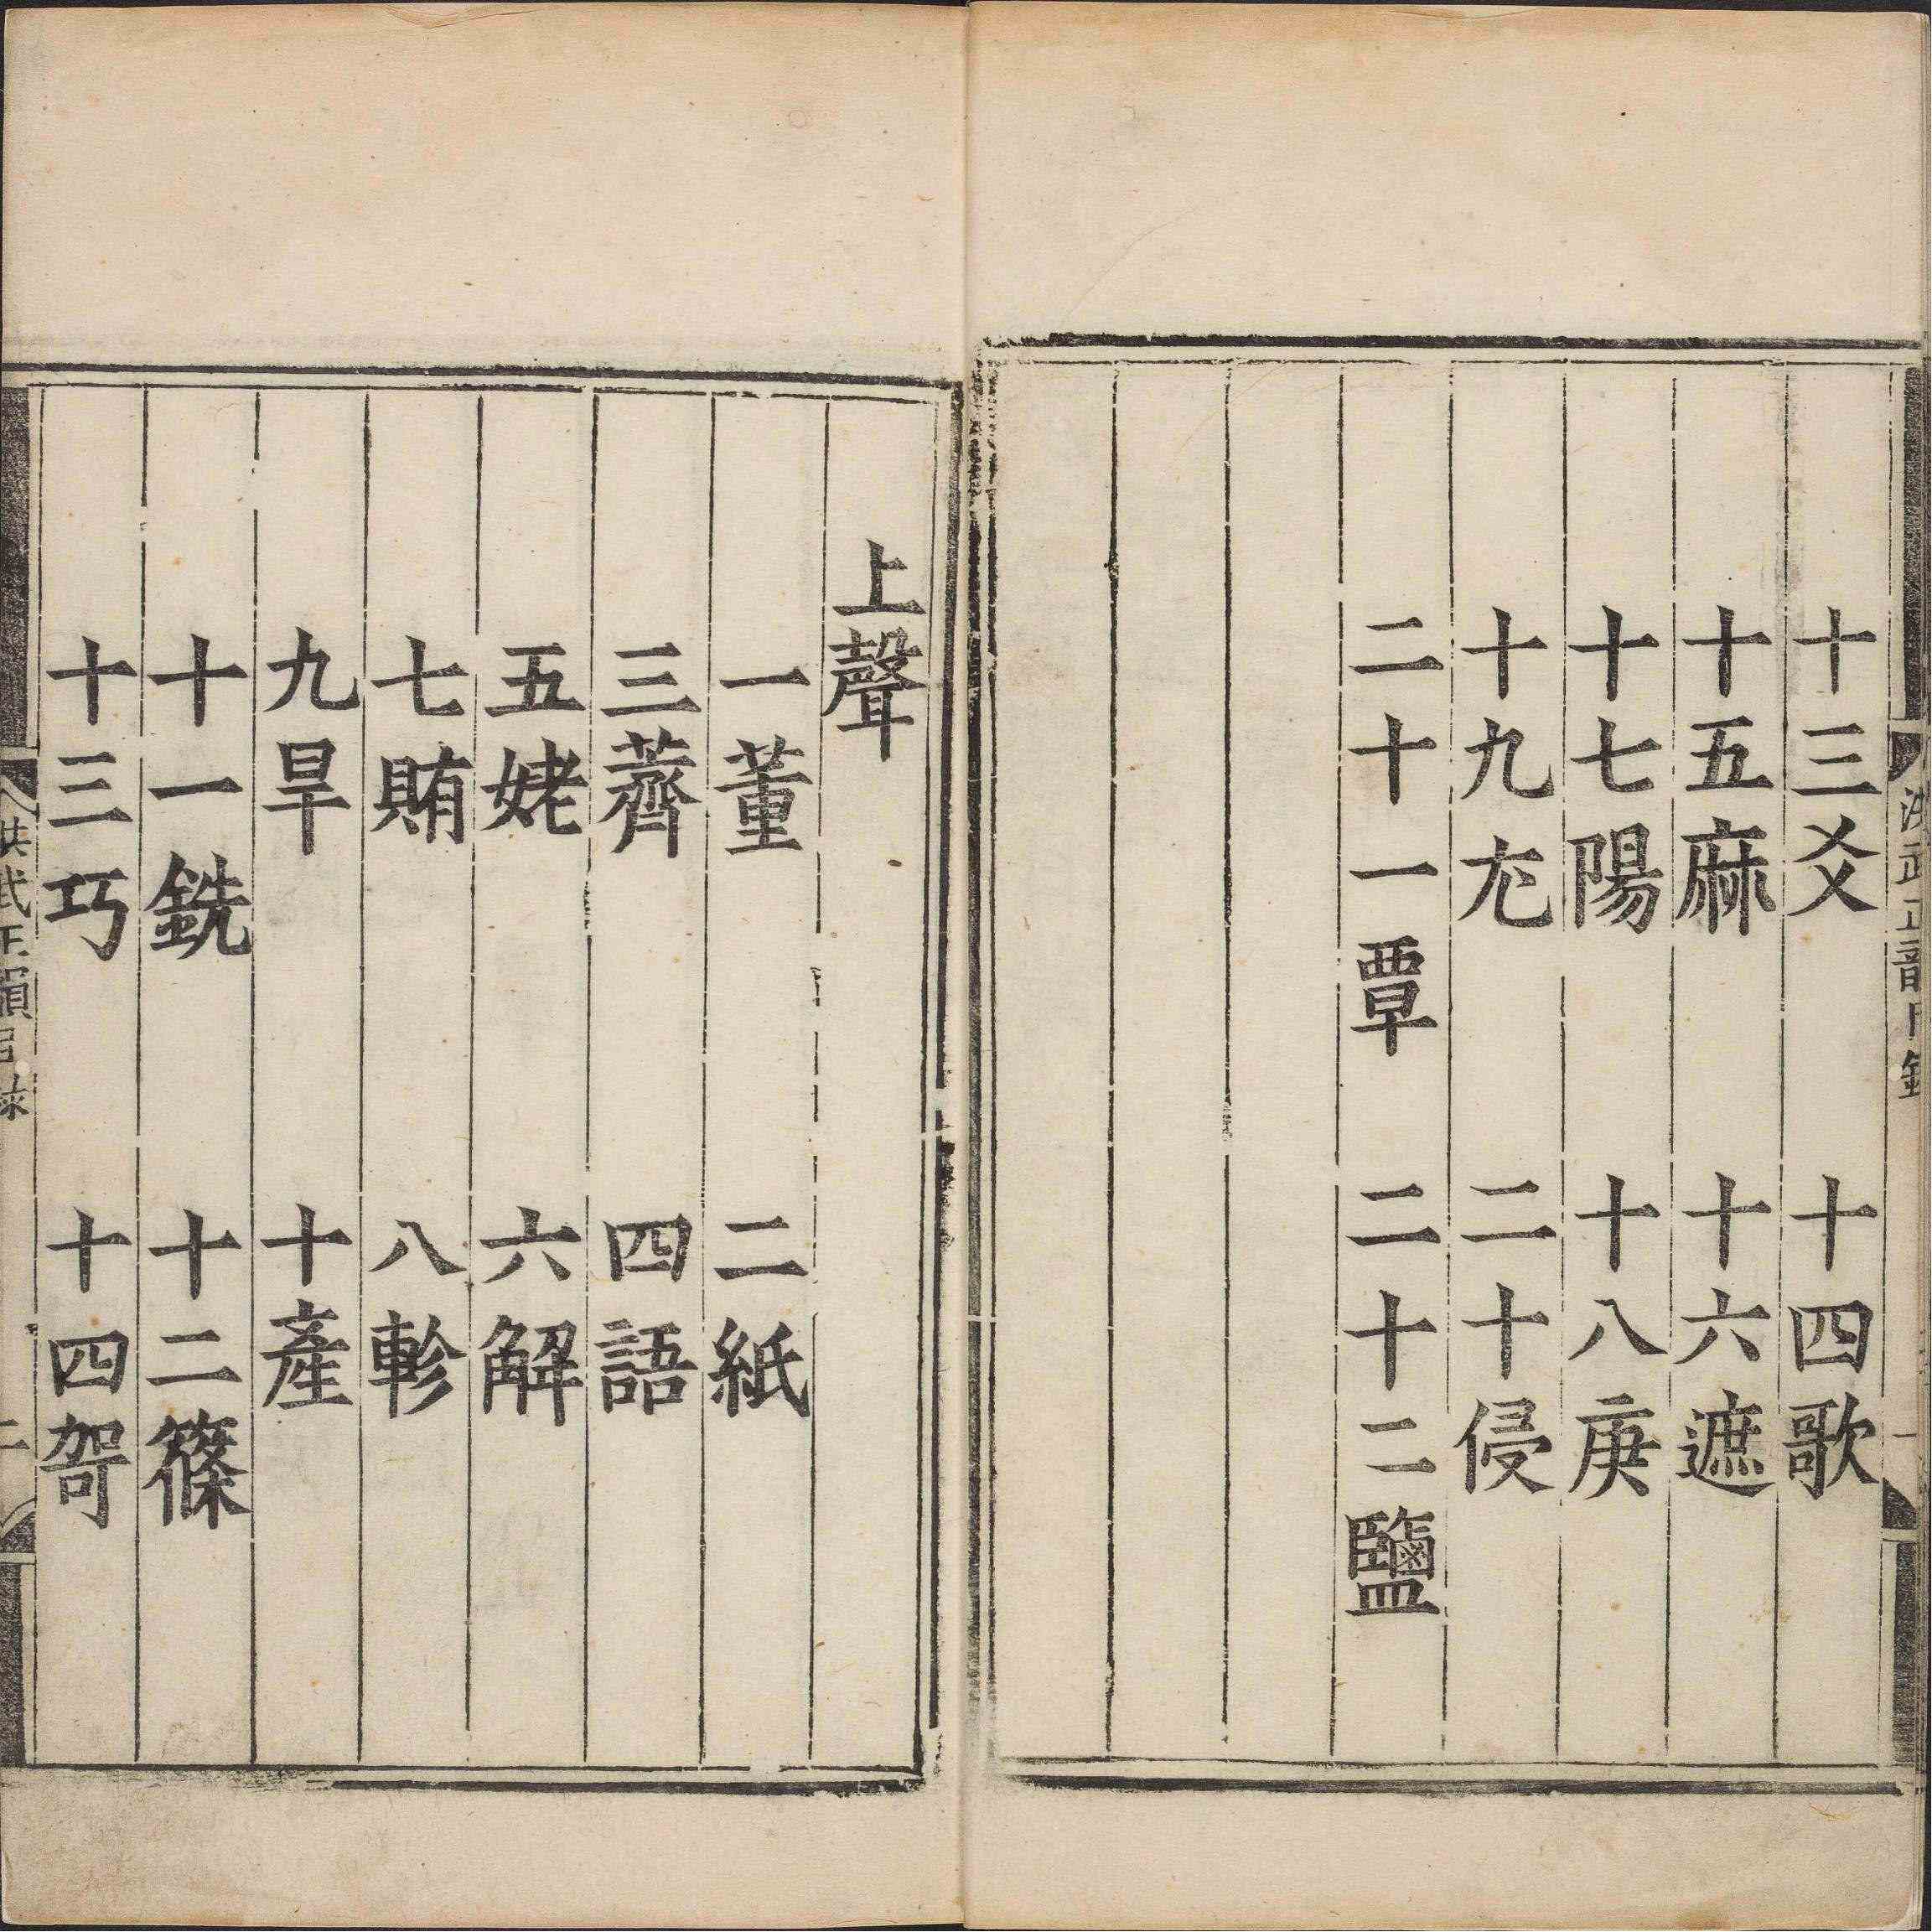 十三爻　十四歌
十五麻　十六遮
十七陽　十八庚
十九尤　二十侵
二十一覃　二十二鹽
上聲
一董　二紙
三薺　四語
五姥　六解
七賄　八軫
九旱　十產
十一銑　十二篠
十三巧　十四哿
洪武正韻目錄
二